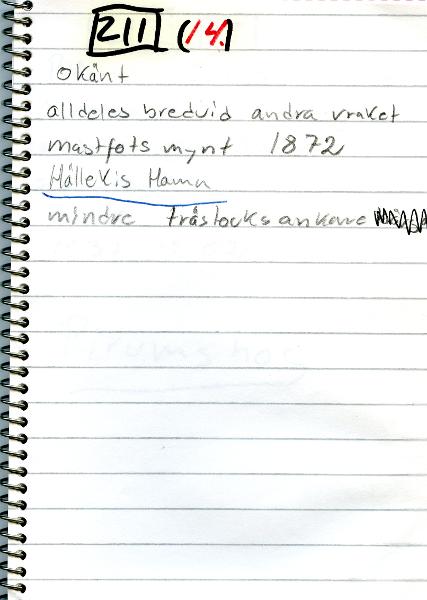 211 (14.)
okänt
alldeles bredvid andra vraket
mastfots mynt 1872
Hällekis Hamn
mindre trästocksankare